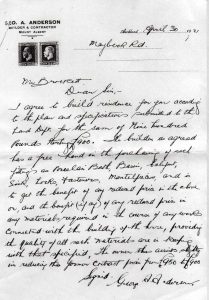 GEO. A. ANDERSON
BUILDER & CONTRACTOR
MOUNT ALBERT
April 30, 1921
Maybeck Rd.
Mr
Dear Sir,
I agree to build residence for you according
to the plan and specifications submitted to the
Land Dept. for the sum of Nine hundred
Pounds £900. The builder is agreed
has a free hand in the purchasing of
fittings as Porcelain Bath, Basin,
Sink, Mantelpieces, and
to get the benefit of any reduced price in the above,
or, and the benefit of any reduced price in
any materials required in the course of any works
connected with the building of the house, providing
the quality of all such materials are in
with that specified. the owner
in reducing the former contract price from £950 to £900
Signed
George A Anderson